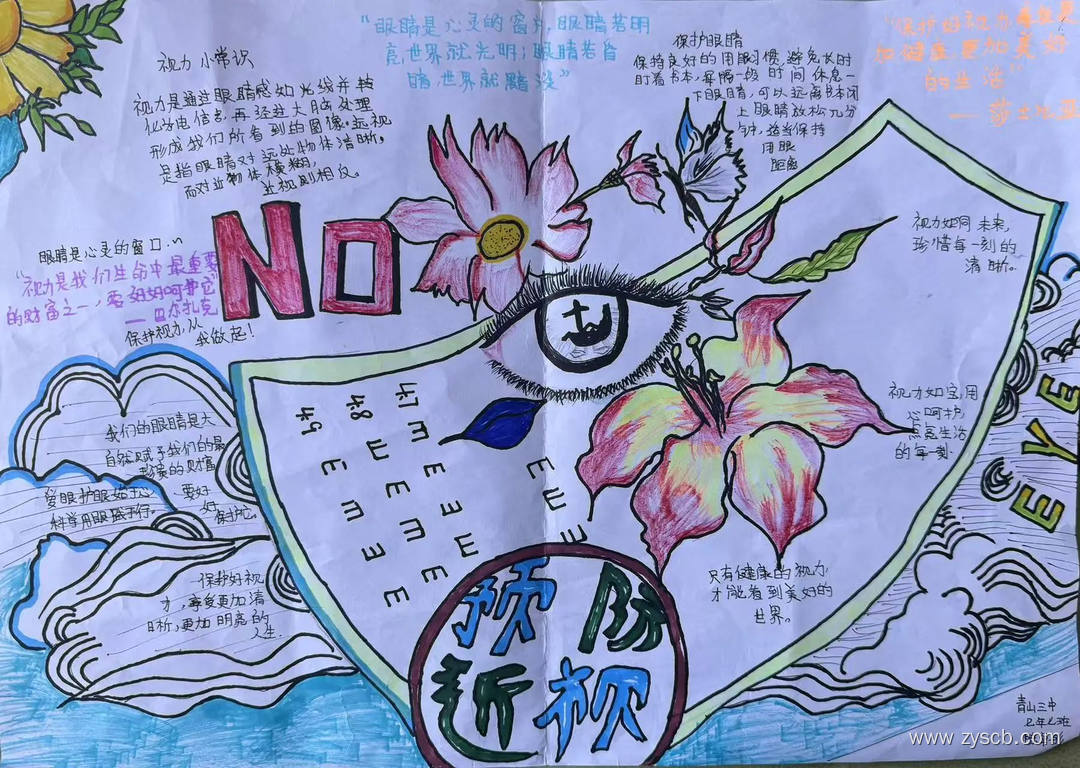 "眼睛是心灵的窗户,眼睛若明
亮,世界就光明;眼睛若昏
暗,世界就黯淡"
"保护好视力,享受更
加健康,更加美好
的生活"
——莎士比亚
视力小常识
视力是通过眼睛感知光线并转
化为电信号,再经过大脑处理
形成我们所看到的图像。远视
是指眼睛对远处物体清晰,
而对近物体模糊,
近视则相反。
保护眼睛
保持良好的用眼习惯,避免长时
盯着书本,每隔一段时间休息一
下眼睛,可以远离书本闭
上眼睛放松几分
钟,适当保持
用眼
距离
NO
眼睛是心灵的窗口.
"视力是我们生命中最重要
的财富之一,要好好呵护它
——巴尔扎克
保护视力,从
我做起!
视力如同未来,
珍惜每一刻的
清晰。
视力如宝,用
心呵护,
点亮生活
的每一刻.
EYE
我们的眼睛是大
自然赋予我们的最
珍贵的财富
要好
好
保护它.
爱眼护眼始于心
科学用眼践于行.
保护好视
力,享受更加清
晰,更加明亮的
人生.
4.7
4.8
4.9
E E E E
E E E E
E E E E
E E E
只有健康的视力
才能看到美好的
世界。
预防
近视
青山三中
七年七班
www.zyscb.com